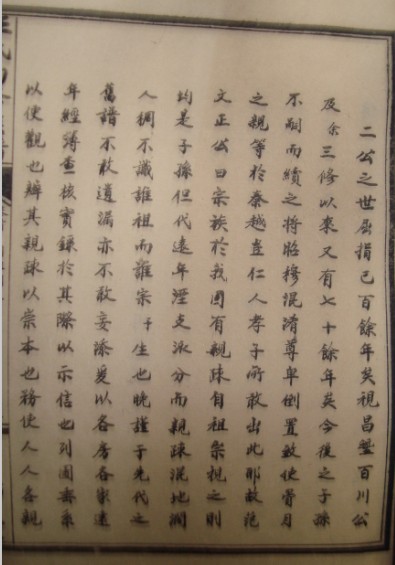 二公之世屈指已百餘年矣視昌鑒百川公
及余三修以來又有七十餘年矣今後之子孫
不嗣而續之將昭穆混淆尊卑倒置致使骨月
之親等於秦越豈仁人孝子所敢出此耶故范
文正公曰宗族於我固有親疎自祖宗視之則
均是子孫但代遠年湮支派分而親疎混地濶
人稠不識誰祖而誰宗予生也晚謹于先代之
舊譜不敢遺漏亦不敢妄添爰以各房各
年經薄查核實錄於其際以示信也列圖
以使觀也辨其親疎以崇本也務使人人各親